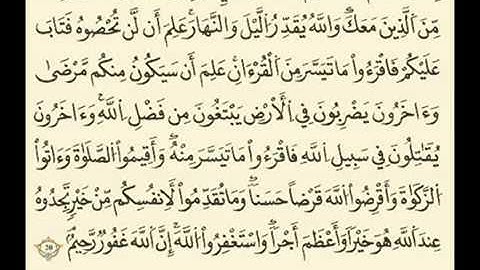 مِّنَ ٱلَّذِينَ مَعَكَۚ وَٱللَّهُ يُقَدِّرُ ٱلَّيْلَ وَٱلنَّهَارَۚ عَلِمَ أَن لَّن تُحْصُوهُ فَتَابَ
عَلَيْكُمْۖ فَٱقْرَءُوا۟ مَا تَيَسَّرَ مِنَ ٱلْقُرْءَانِۚ عَلِمَ أَن سَيَكُونُ مِنكُم مَّرْضَىٰ
وَءَاخَرُونَ يَضْرِبُونَ فِى ٱلْأَرْضِ يَبْتَغُونَ مِن فَضْلِ ٱللَّهِۙ وَءَاخَرُونَ
يُقَـٰتِلُونَ فِى سَبِيلِ ٱللَّهِۖ فَٱقْرَءُوا۟ مَا تَيَسَّرَ مِنْهُۚ وَأَقِيمُوا۟ ٱلصَّلَوٰةَ وَءَاتُوا۟
ٱلزَّكَوٰةَ وَأَقْرِضُوا۟ ٱللَّهَ قَرْضًا حَسَنًاۚ وَمَا تُقَدِّمُوا۟ لِأَنفُسِكُم مِّنْ خَيْرٍ تَجِدُوهُ
عِندَ ٱللَّهِ هُوَ خَيْرًا وَأَعْظَمَ أَجْرًاۚ وَٱسْتَغْفِرُوا۟ ٱللَّهَۖ إِنَّ ٱللَّهَ غَفُورٌ رَّحِيمٌۢ ٢٠